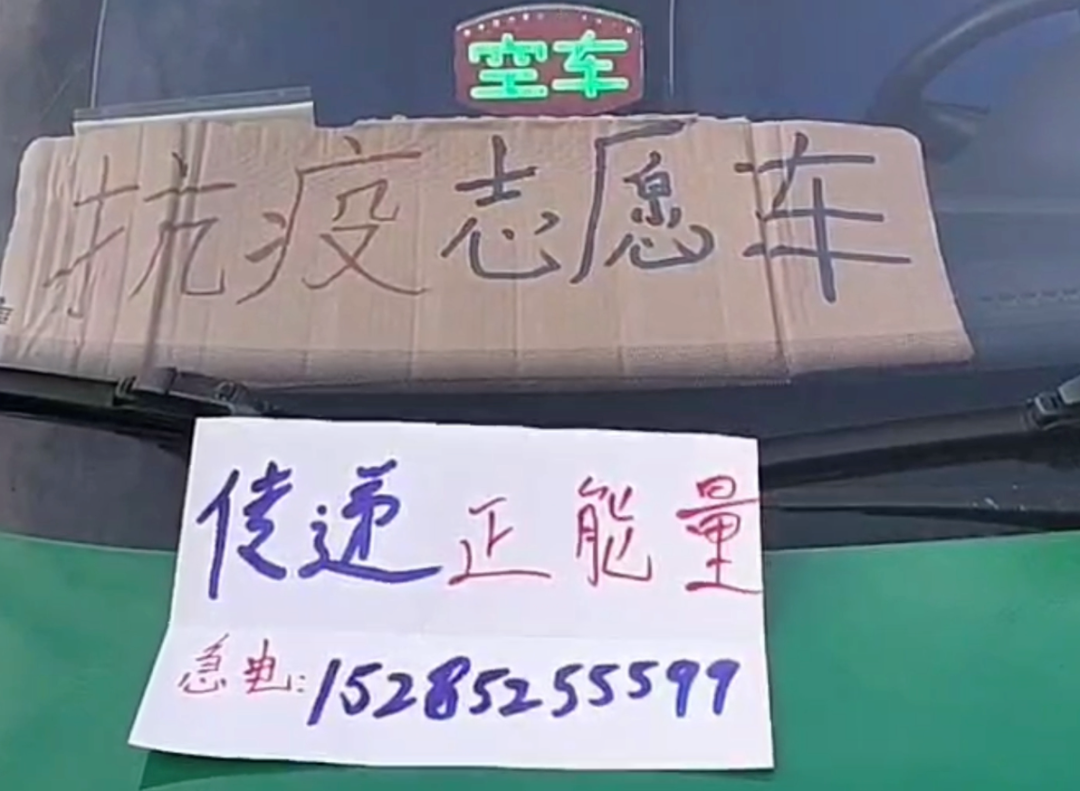 空车
抗疫志愿车
传递正能量
急电:15285255599